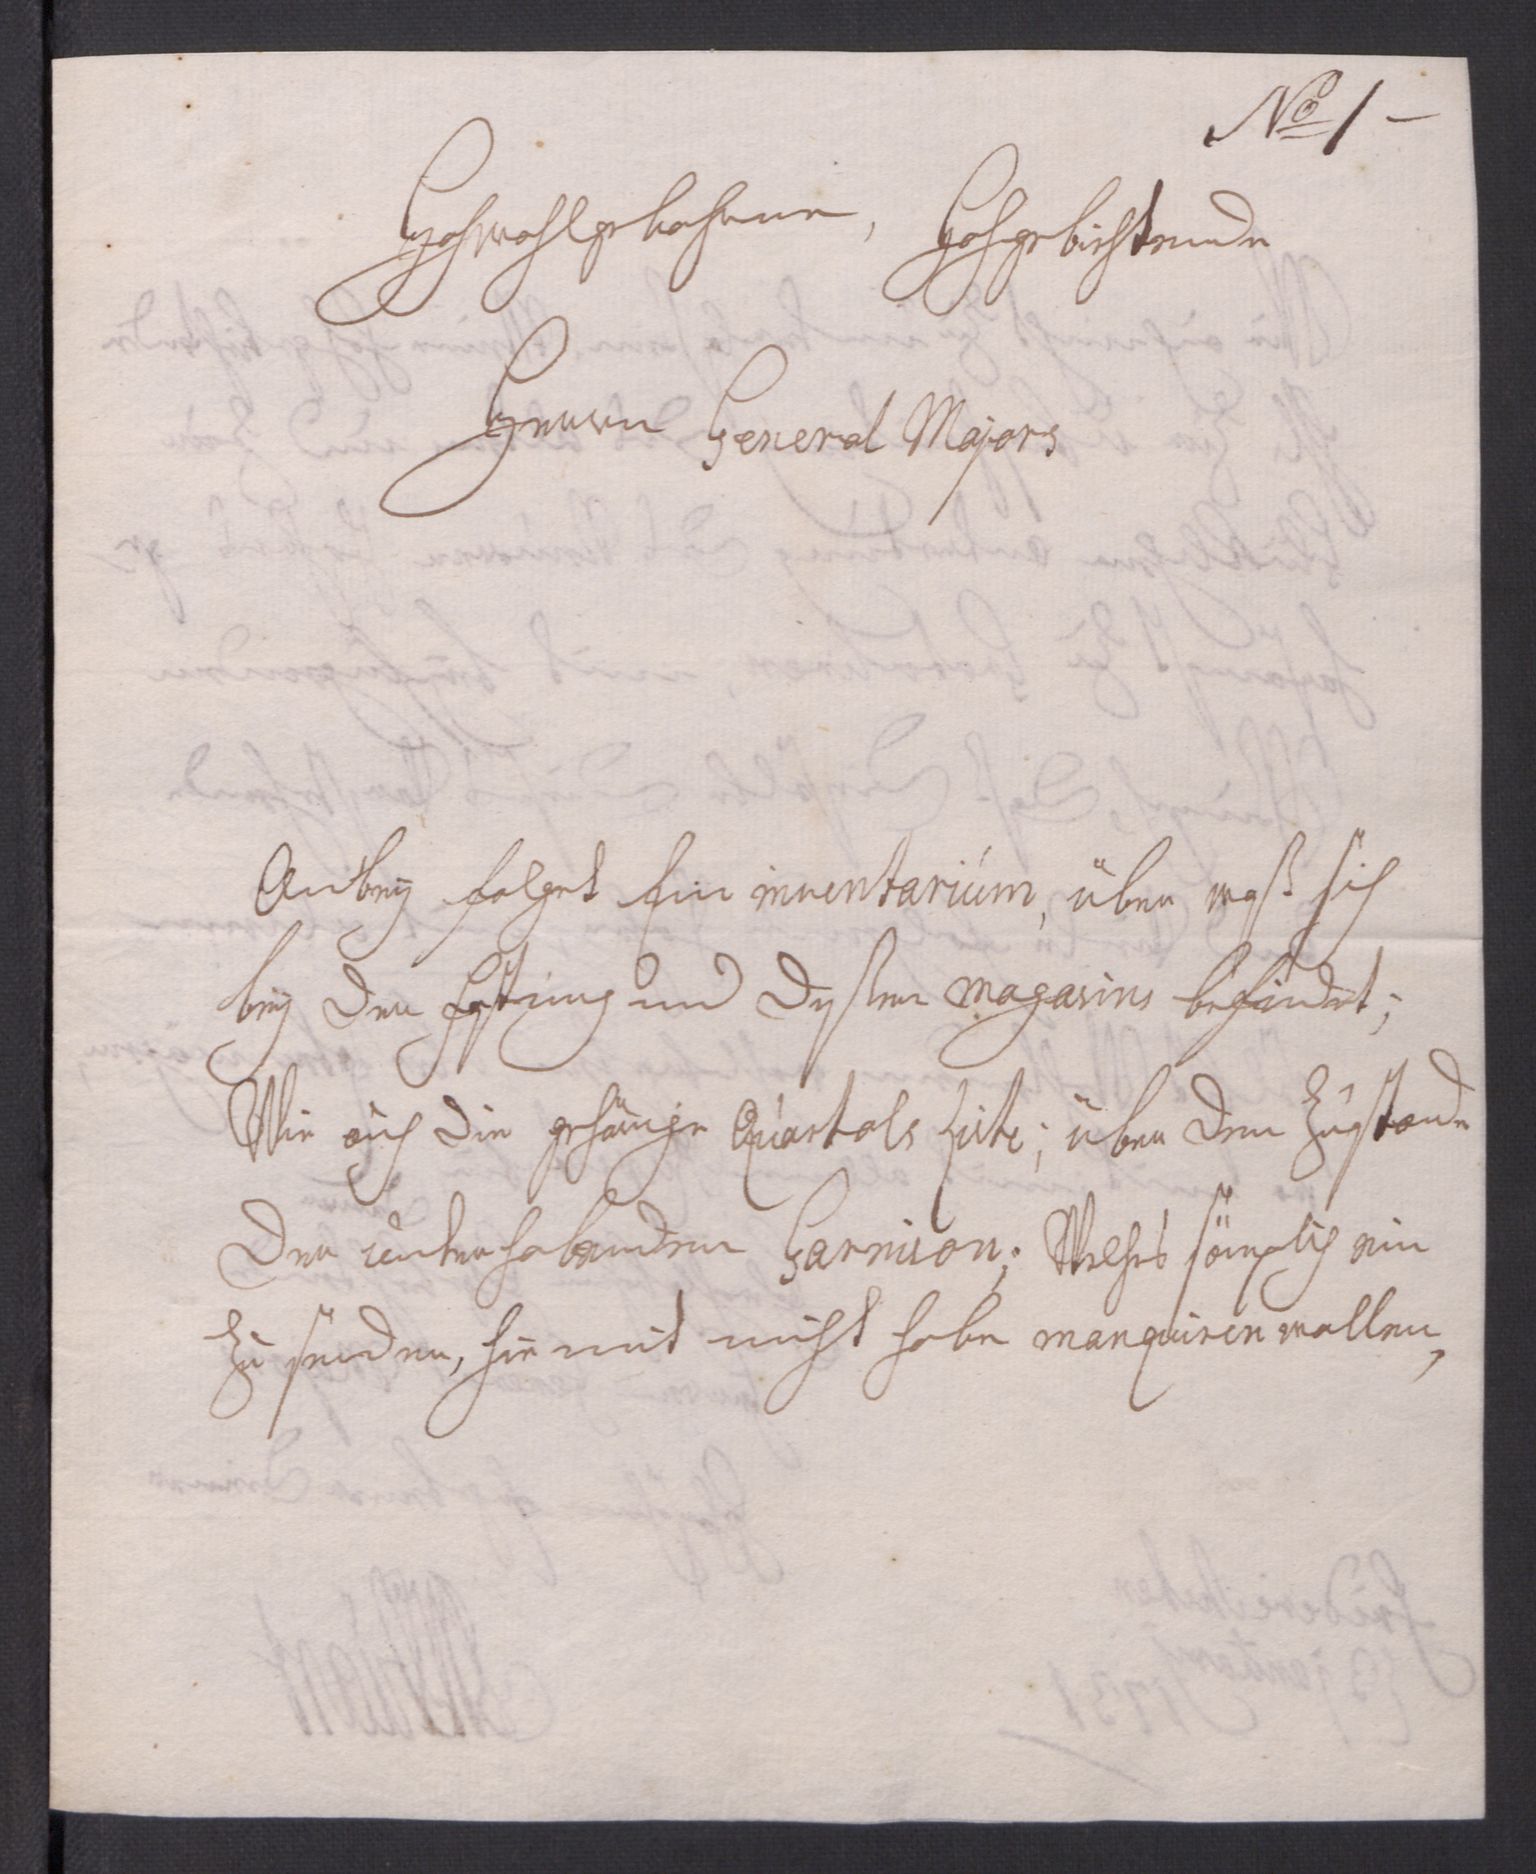 No 1 –
Hochwohlgebohrne, Hochgebiehtende
Herren General Majors
Anbeÿ folget Ein inventarium, über waß sich
beÿ der Estung und Dessen magasins befindet;
Wie auch die gehörige Quartals Liste; über den Zustande
der unterhabenden Garnison; Welches sämptlich ein
zu senden, hie mit nicht habe manquiren wollen,